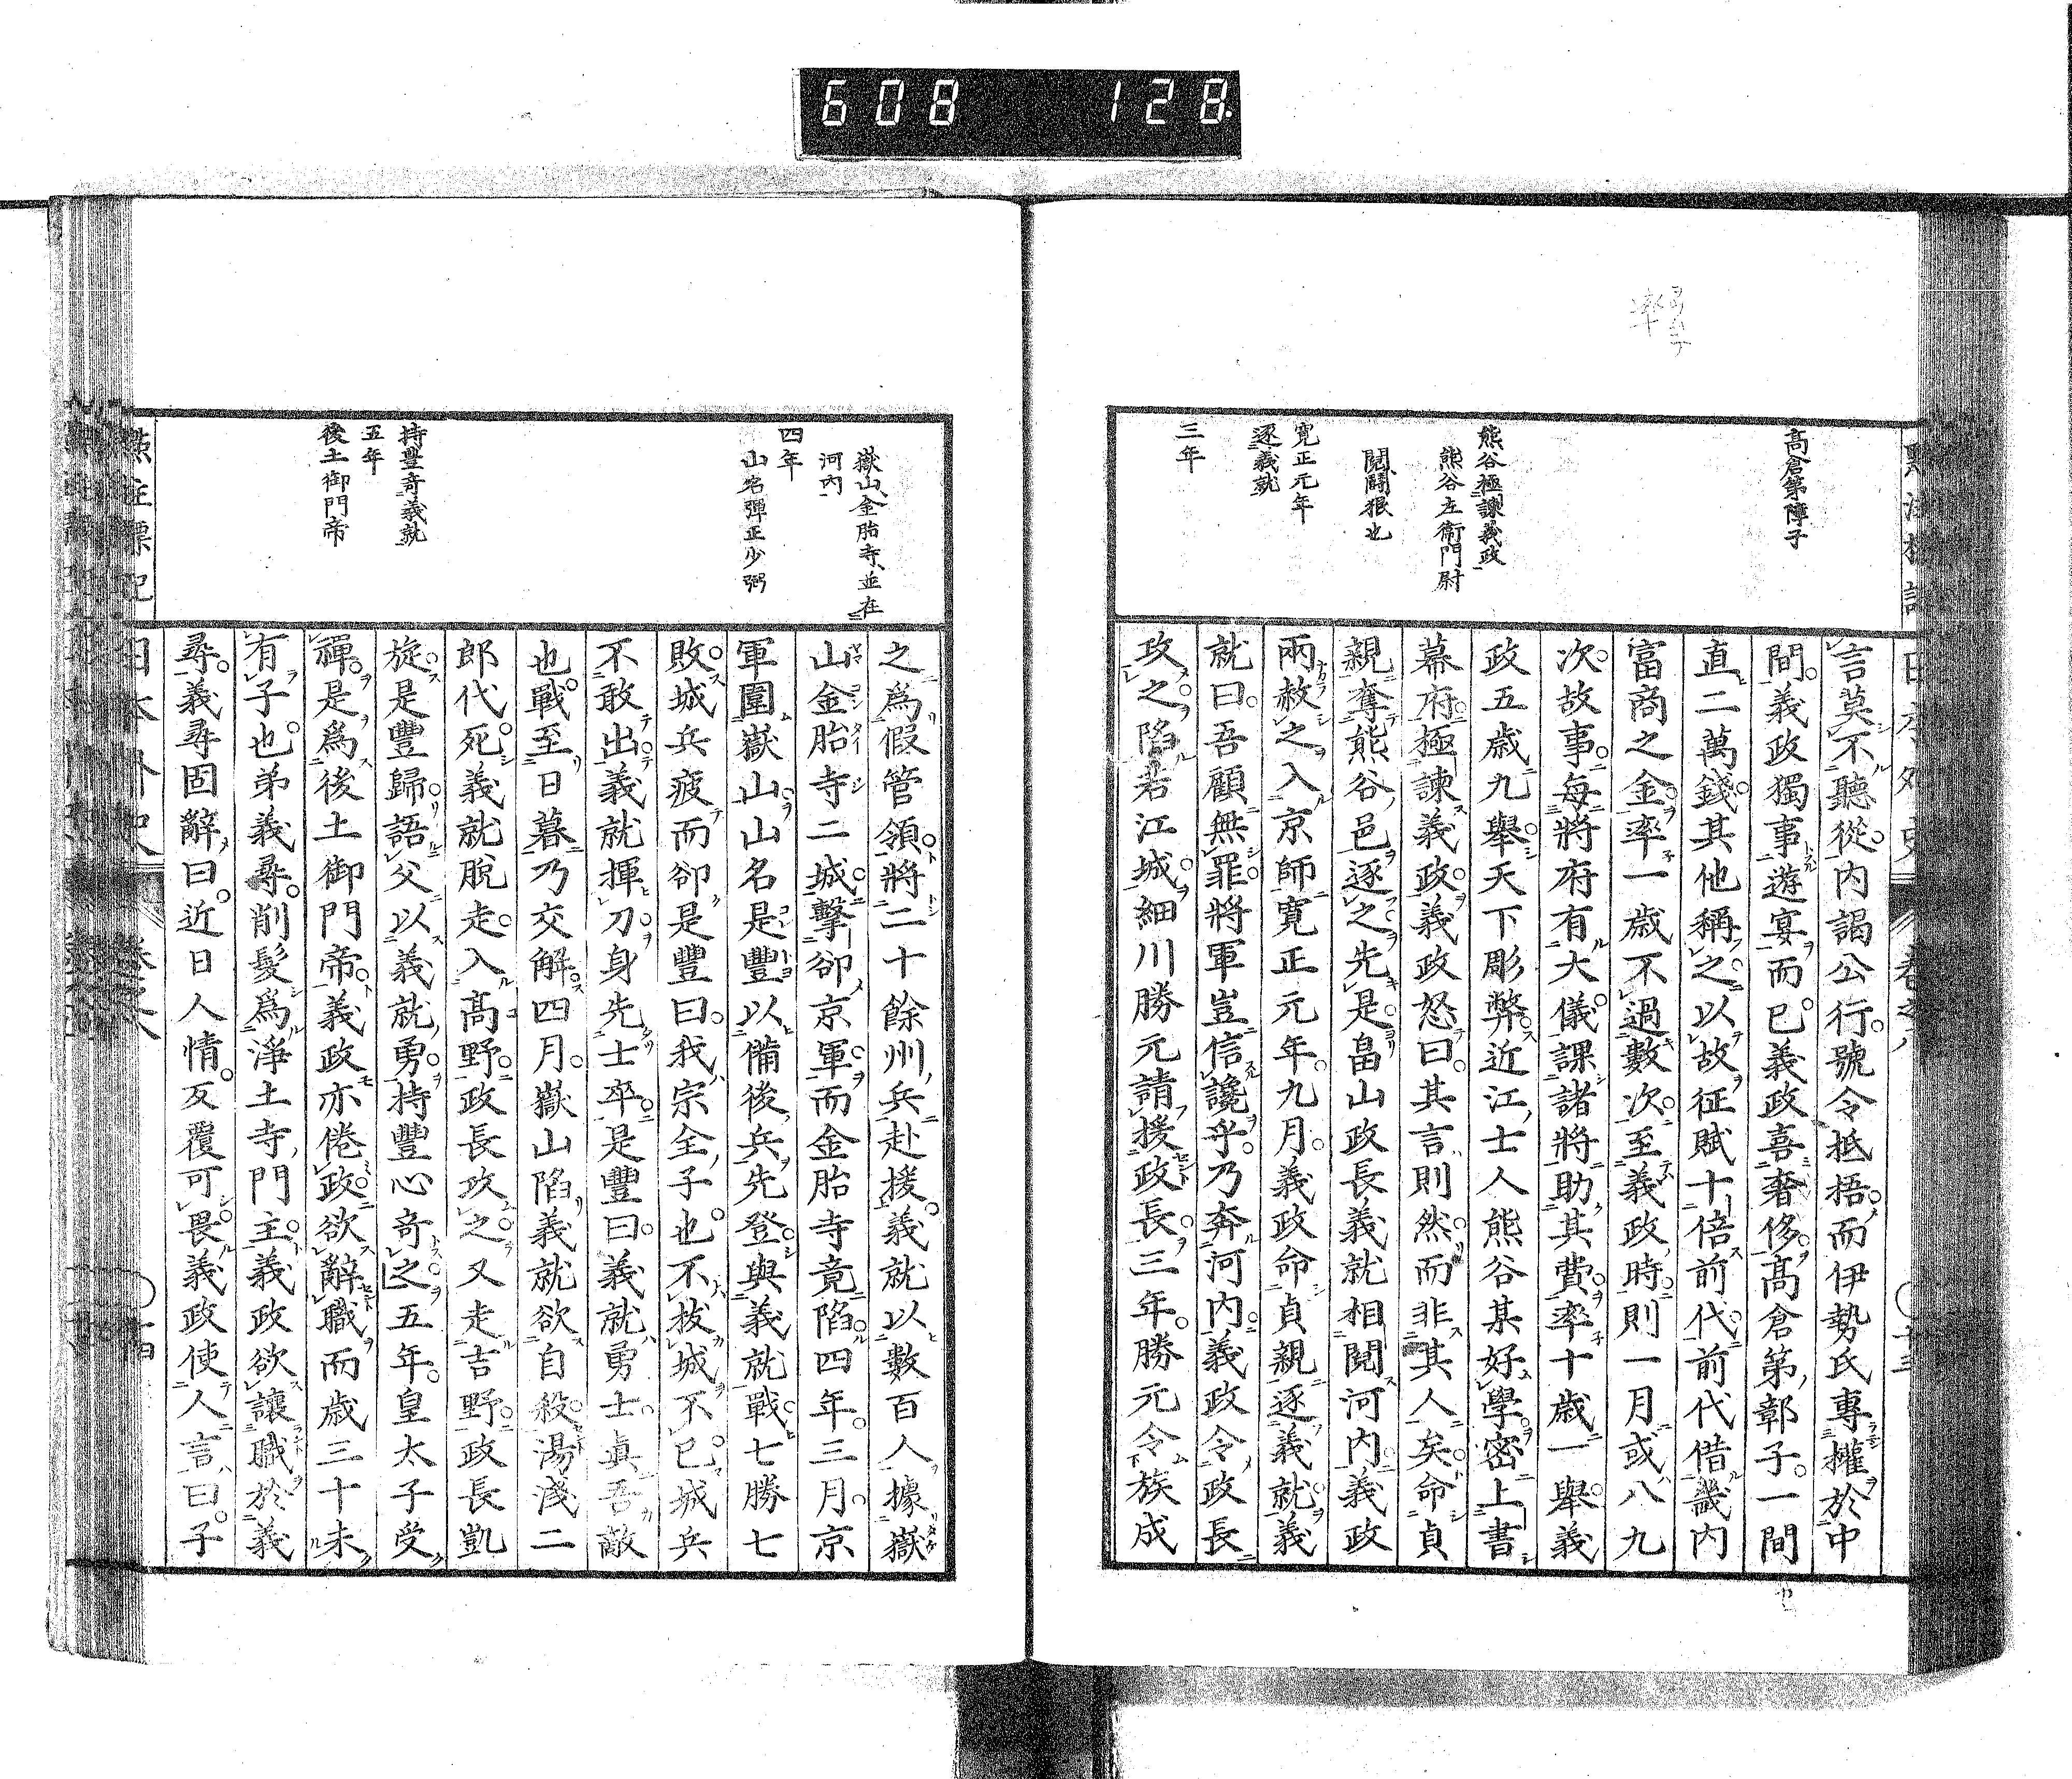 608 128
率
高倉第障子
熊谷極諫義政
熊谷左衞門尉
鬩鬪狠也
寛正元年
逐義就
三年
言莫不聽從。内謁公行。號令抵捂。而伊勢氏專權於中
間。義政獨事遊宴而已。義政喜奢侈。高倉第彰子。一間
直二萬錢。其他稱之。以故征賦十倍前代。前代借畿内
富商之金。率一歲不過數次。至義政時。則一月或八九
次。故事。每將府有大儀。課諸將助其費。率十歲一舉。義
政五歲九舉。天下彫弊。近江士人熊谷某好學。密上書
幕府。極諫義政。義政怒曰。其言則然。而非其人矣。命貞
親奪熊谷邑。逐之。先是畠山政長義就相鬩河内。義政
兩赦之。入京師。寛正元年。九月。義政命貞親逐義就。義
就曰。吾顧無罪。將軍豈信讒乎。乃奔河内。義政令政長
攻之。陷若江城。細川勝元請援政長。三年。勝元令族成
嶽山金胎寺、並在
河内
四年
山名彈正少弼
持豐奇義就
五年
後土御門帝
之爲假管領。將二十餘州兵赴援。義就以數百人據嶽
山金胎寺二城。擊卻京軍。而金胎寺竟陷。四年。三月。京
軍圍嶽山。山名是豐以備後兵先登。與義就戰。七勝七
敗。城兵疲而卻。是豐曰。我宗全子也。不拔城不已。城兵
不敢出。義就揮刀身先士卒。是豐曰。義就勇士。眞吾敵
也。戰至日暮。乃交解。四月。嶽山陷。義就欲自殺。湯淺二
郎代死。義就脫走入高野。政長攻之。又走吉野。政長凱
旋。是豐歸。語父以義就勇。持豐心奇之。五年。皇太子受
禪。是爲後土御門帝。義政亦倦政。欲辭職。而歲三十未
有子也。弟義尋。削髮爲淨土寺門主。義政欲讓職於義
尋。義尋固辭曰。近日人情。反覆可畏。義政使人言曰。子
標記
日本外史 卷之八